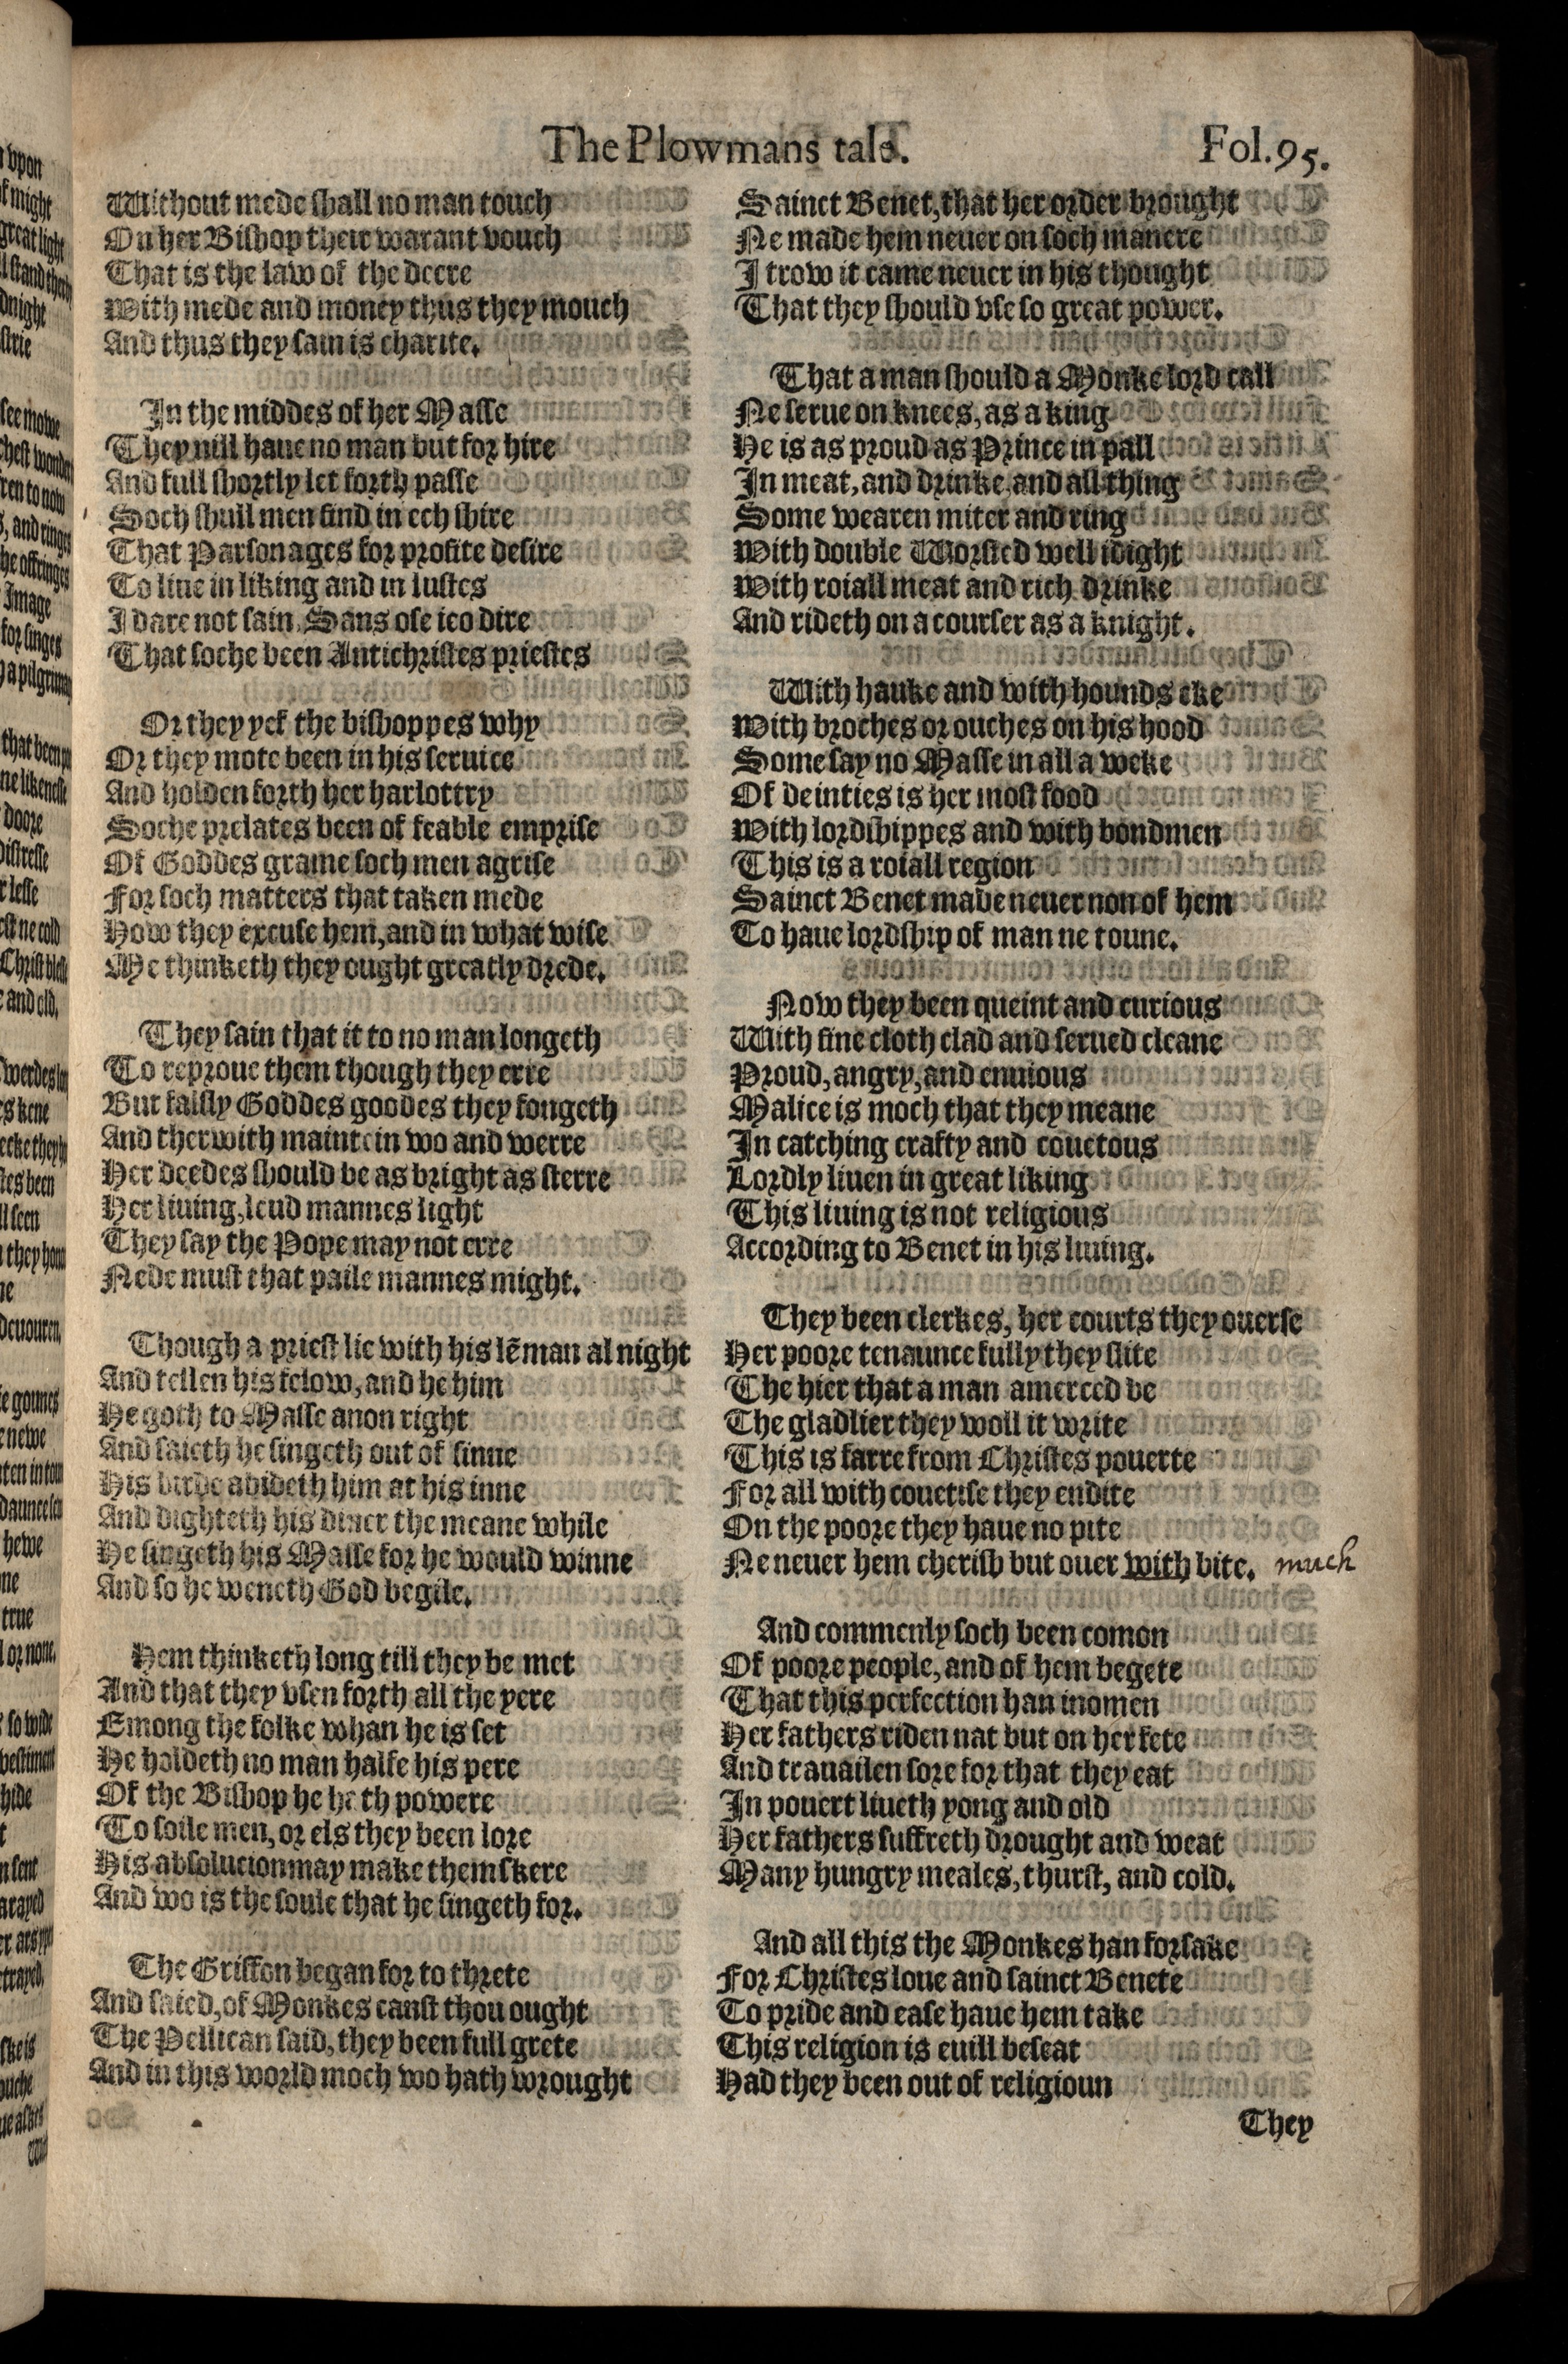 The Plowmans tale.
Fol.95.
Without mede shall no man touch
On her Bishop their warant vouch
That is the law of the deere
With mede and money thus they mouch
And thus they sain is charite.
In the middes of her Masse
They nill haue no man but for hire
And full shortly let forth passe
Soch shull men find in ech shire
That Parsonages for profite desire
To liue in liking and in lustes
I dare not sain, Sans ose ieo dire
That soche been Antichristes priestes
Or they yef the bishoppes why
Or they mote been in his seruice
And holden forth her harlottry
Soche prelates been of feable emprise
Of Goddes grame soch men agrise
For soch matters that taken mede
How they excuse hem, and in what wise
Me thinketh they ought greatly drede.
They sain that it to no man longeth
To reproue them though they erre
But falsly Goddes goodes they fongeth
And therwith maintein wo and werre
Her deedes should be as bright as sterre
Her liuing, leud mannes light
They say the Pope may not erre
Nede must that passe mannes might.
Though a priest lie with his lēman al night
And tellen his felow, and he him
He goth to Masse anon right
And saieth he singeth out of sinne
His birde abideth him at his inne
And dighteth his diner the meane while
He singeth his Masse for he would winne
And so he weneth God begile.
Hem thinketh long till they be met
And that they vsen forth all the yere
Emong the folke whan he is set
He holdeth no man halfe his pere
Of the Bishop he hath powere
To soile men, or els they been lore
His absolucion may make them skere
And wo is the soule that he singeth for.
The Griffon began for to threte
And saied, of Monkes canst thou ought
The Pellican said, they been full grete
And in this world moch wo hath wrought
Sainct Benet, that her order brought
Ne made hem neuer on soch manere
I trow it came neuer in his thought
That they should vse so great power.
That a man should a Monke lord call
Ne serue on knees, as a king
He is as proud as Prince in pall
In meat, and drinke, and all thing
Some wearen miter and ring
With double Worsted well idight
With roiall meat and rich drinke
And rideth on a courser as a knight.
With hauke and with hounds eke
With broches or ouches on his hood
Some say no Masse in all a weke
Of deinties is her most food
With lordshippes and with bondmen
This is a roiall region
Sainct Benet made neuer non of hem
To haue lordship of man ne toune.
Now they been queint and curious
With fine cloth clad and serued cleane
Proud, angry, and enuious
Malice is moch that they meane
In catching crafty and couetous
Lordly liuen in great liking
This liuing is not religious
According to Benet in his liuing.
They been clerkes, her courts they ouerse
Her poore tenaunce fully they slite
The hier that a man amerced be
The gladlier they woll it write
This is farre from Christes pouerte
For all with couetise they endite
On the poore they haue no pite
Ne neuer hem cherish but ouer with bite. much
And commenly soch been comon
Of poore people, and of hem begete
That this perfection han inomen
Her fathers riden nat but on her fete
And trauailen sore for that they eat
In pouert liueth yong and old
Her fathers suffreth drought and weat
Many hungry meales, thurst, and cold.
And all this the Monkes han forsake
For Christes loue and sainct Benete
To pride and ease haue hem take
This religion is euill beseat
Had they been out of religioun
They